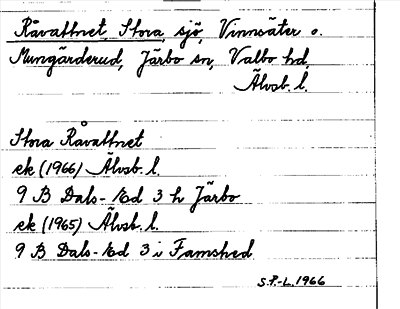 Råvattnet, Stora, sjö, Vinnsäter o.
Mungärderud, Järbo sn, Valbo hd,
Älvsb. l.
Stora Råvattnet
ek (1966) Älvsb. l.
9 B Dals-Ed 3 h Järbo
ek (1965) Älvsb. l.
9 B Dals-Ed 3 i Famshed
S.P.-L. 1966